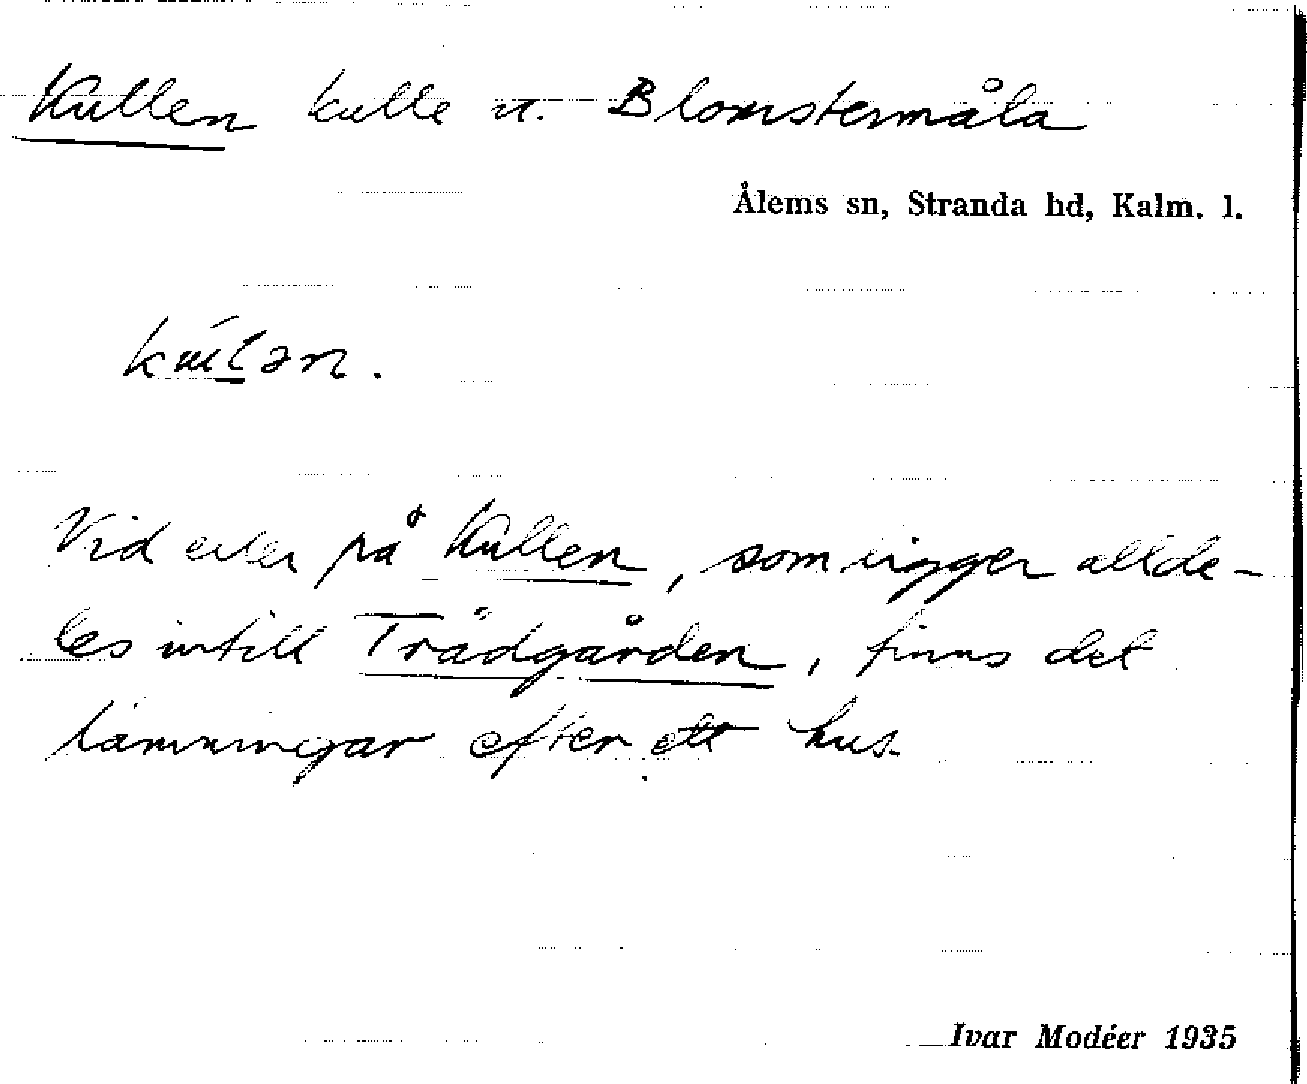 Kullen kulle n. Blomstermåla
Ålems sn, Stranda hd, Kalm. l.
Vid eller på Kullen, som ligger allde-
les intill Trädgården, finns det
lämningar efter ett hus.
Ivar Modéer 1935